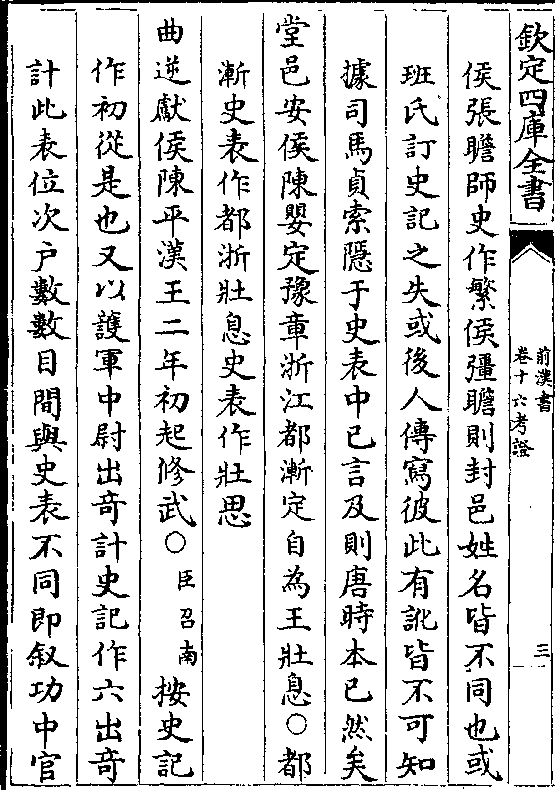 欽定四庫全書
前漢書
卷十六考證
三
侯張瞻師史作繁侯彊瞻則封邑姓名皆不同也或
班氏訂史記之失或後人傳寫彼此有訛皆不可知
據司馬貞索隱于史表中已言及則唐時本已然矣
堂邑安侯陳嬰定豫章浙江都漸定自為王壯息○都
漸史表作都浙壯息史表作壯思
曲逆獻侯陳平漢王二年初起修武○臣召南按史記
作初從是也又以護軍中尉出奇計史記作六出奇
計此表位次户數數目間與史表不同即叙功中官